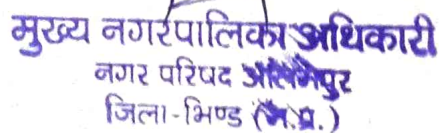 मुख्य नगरपालिका अधिकारी
नगर परिषद आलमपुर
जिला-भिण्ड (म.प्र.)